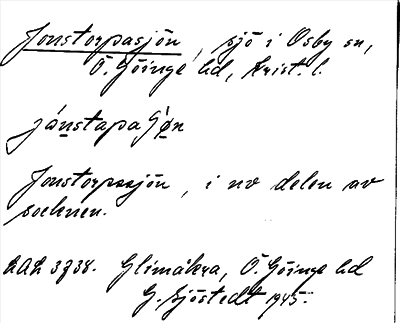 Jonstorpasjön, sjö i Osby sn,
Ö. Göinge hd, Krist. l.
jånstapaʃøn
Jonstorpasjön, i nv delen av
socknen.
LAL 3738. Glimåkra, Ö. Göinge hd
G. Sjöstedt 1945.